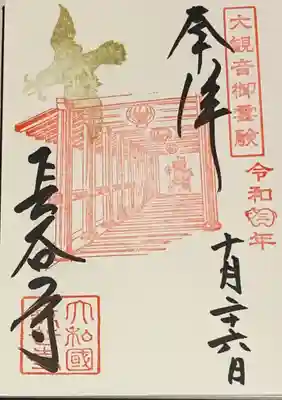 大観音御霊験
令和
年
奉拝
十月二十六日
長谷寺
大和國